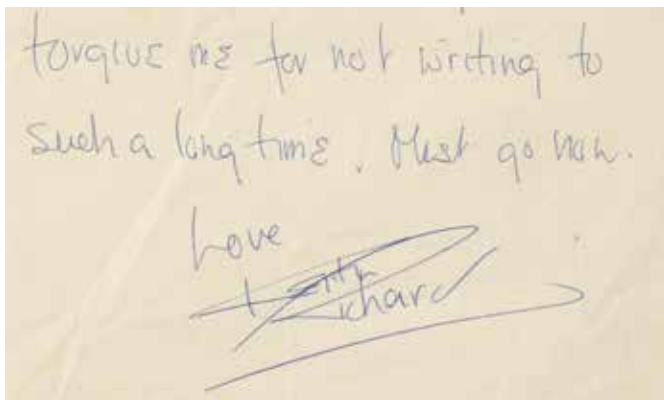 forgive me for not writing to
such a long time. Must go now.
Love
Keith
Richard